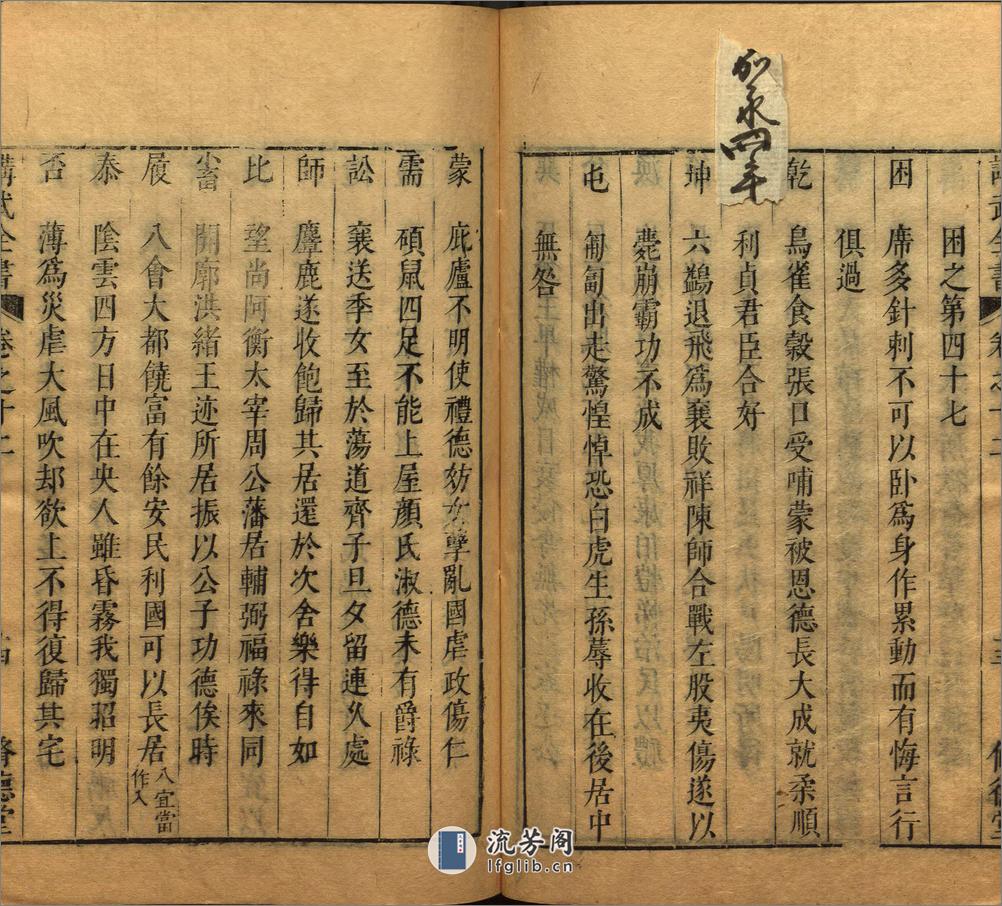 加永四年
困之第四十七
困 席多針刺不可以卧爲身作累動而有悔言行
俱過
乾 鳥雀食穀張口受哺蒙被恩德長大成就柔順
利貞君臣合好
坤 六鷁退飛爲襄敗祥陳師合戰左股夷傷遂以
薨崩霸功不成
屯 匍匐出走驚惶悼恐白虎生孫蓐收在後居中
無咎
蒙 庇廬不明使禮德妨女孽亂國虐政傷仁
需 碩鼠四足不能上屋顏氏淑德未有爵祿
訟 襄送季女至於蕩道齊子旦夕留連久處
師 麐鹿遂收飽歸其居還於次舍樂得自如
比 望尚阿衡太宰周公藩居輔弼福祿來同
小畜 開廓洪緒王迹所居振以公子功德俟時
履 八會大都饒富有餘安民利國可以長居 八宜當作入
泰 陰雲四方日中在央人雖昏霧我獨昭明
否 薄爲災虐大風吹却欲上不得復歸其宅
講武全書 卷之十二
流芳阁
lfglib.cn